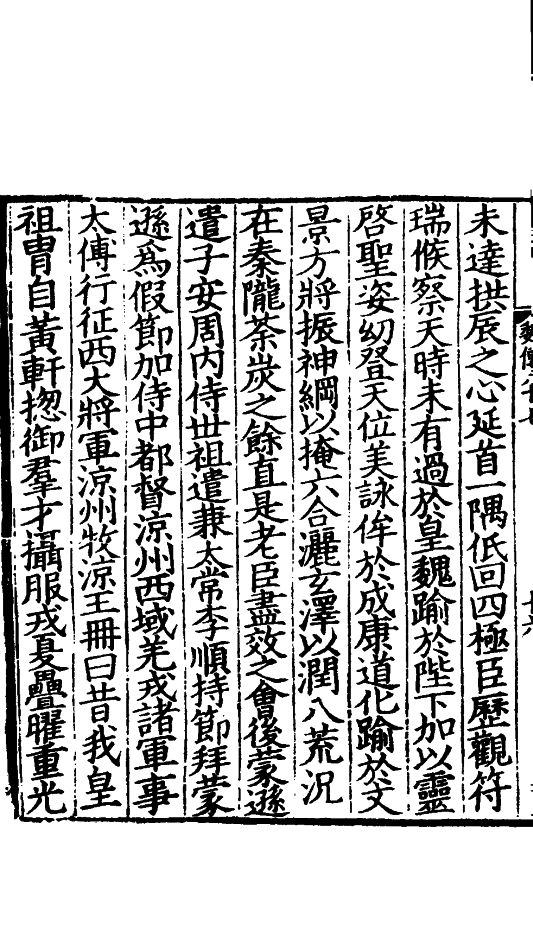 魏傳八十七
十六
未達拱辰之心延首一隅低回四極臣歷觀符
瑞候察天時未有過於皇魏踰於陛下加以靈
啓聖姿幼登天位美詠侔於成康道化踰於文
景方將振神綱以掩六合灑玄澤以潤八荒況
在秦隴荼炭之餘直是老臣盡效之會後蒙遜
遣子安周内侍世祖遣兼太常李順持節拜蒙
遜爲假節加侍中都督涼州西域羌戎諸軍事
太傅行征西大將軍涼州牧涼王冊曰昔我皇
祖胄自黃軒揔御羣才攝服戎夏疊曜重光